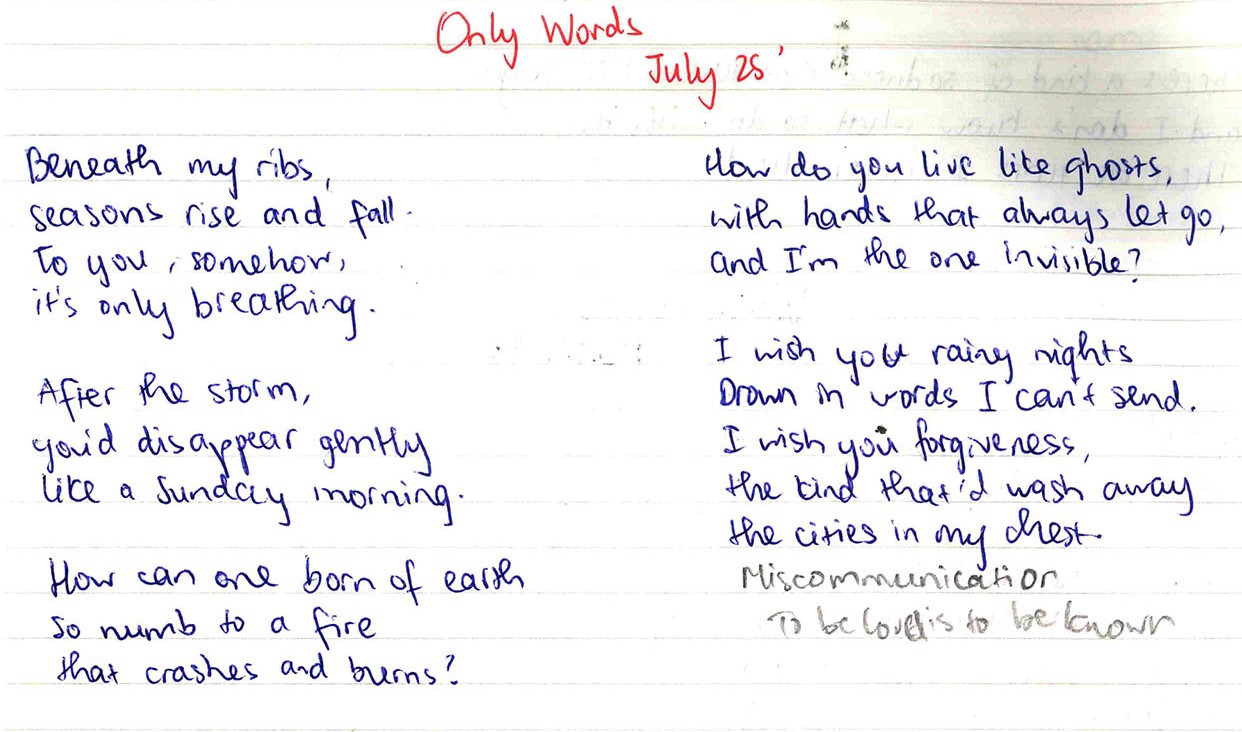 Only Words
July 25'
Beneath my ribs,
seasons rise and fall.
To you, somehow,
it's only breathing.
After the storm,
you'd disappear gently
like a Sunday morning.
How can one born of earth
so numb to a fire
that crashes and burns?
How do you live like ghosts,
with hands that always let go,
and I'm the one invisible?
I wish your rainy nights
Drown in words I can't send.
I wish you forgiveness,
the kind that'd wash away
the cities in my chest.
Miscommunication
To be loved is to be known